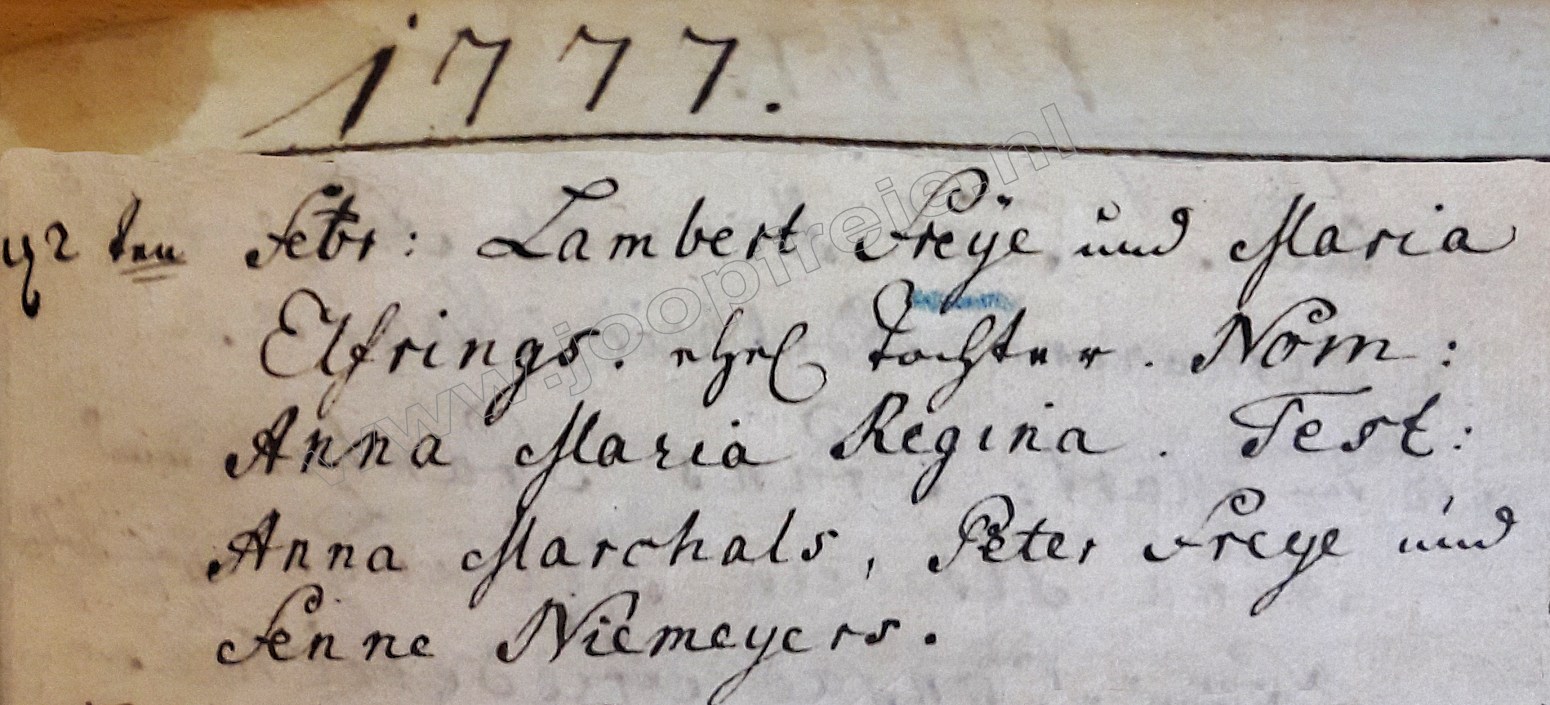 1777.
ten Febr: Lambert Freÿe und Maria
Elfrings. ehel tochter. Nom:
Anna Maria Regina. Test:
Anna Marchals, Peter Freye und
Fenne Niemeyers.
www.joopfreie.nl